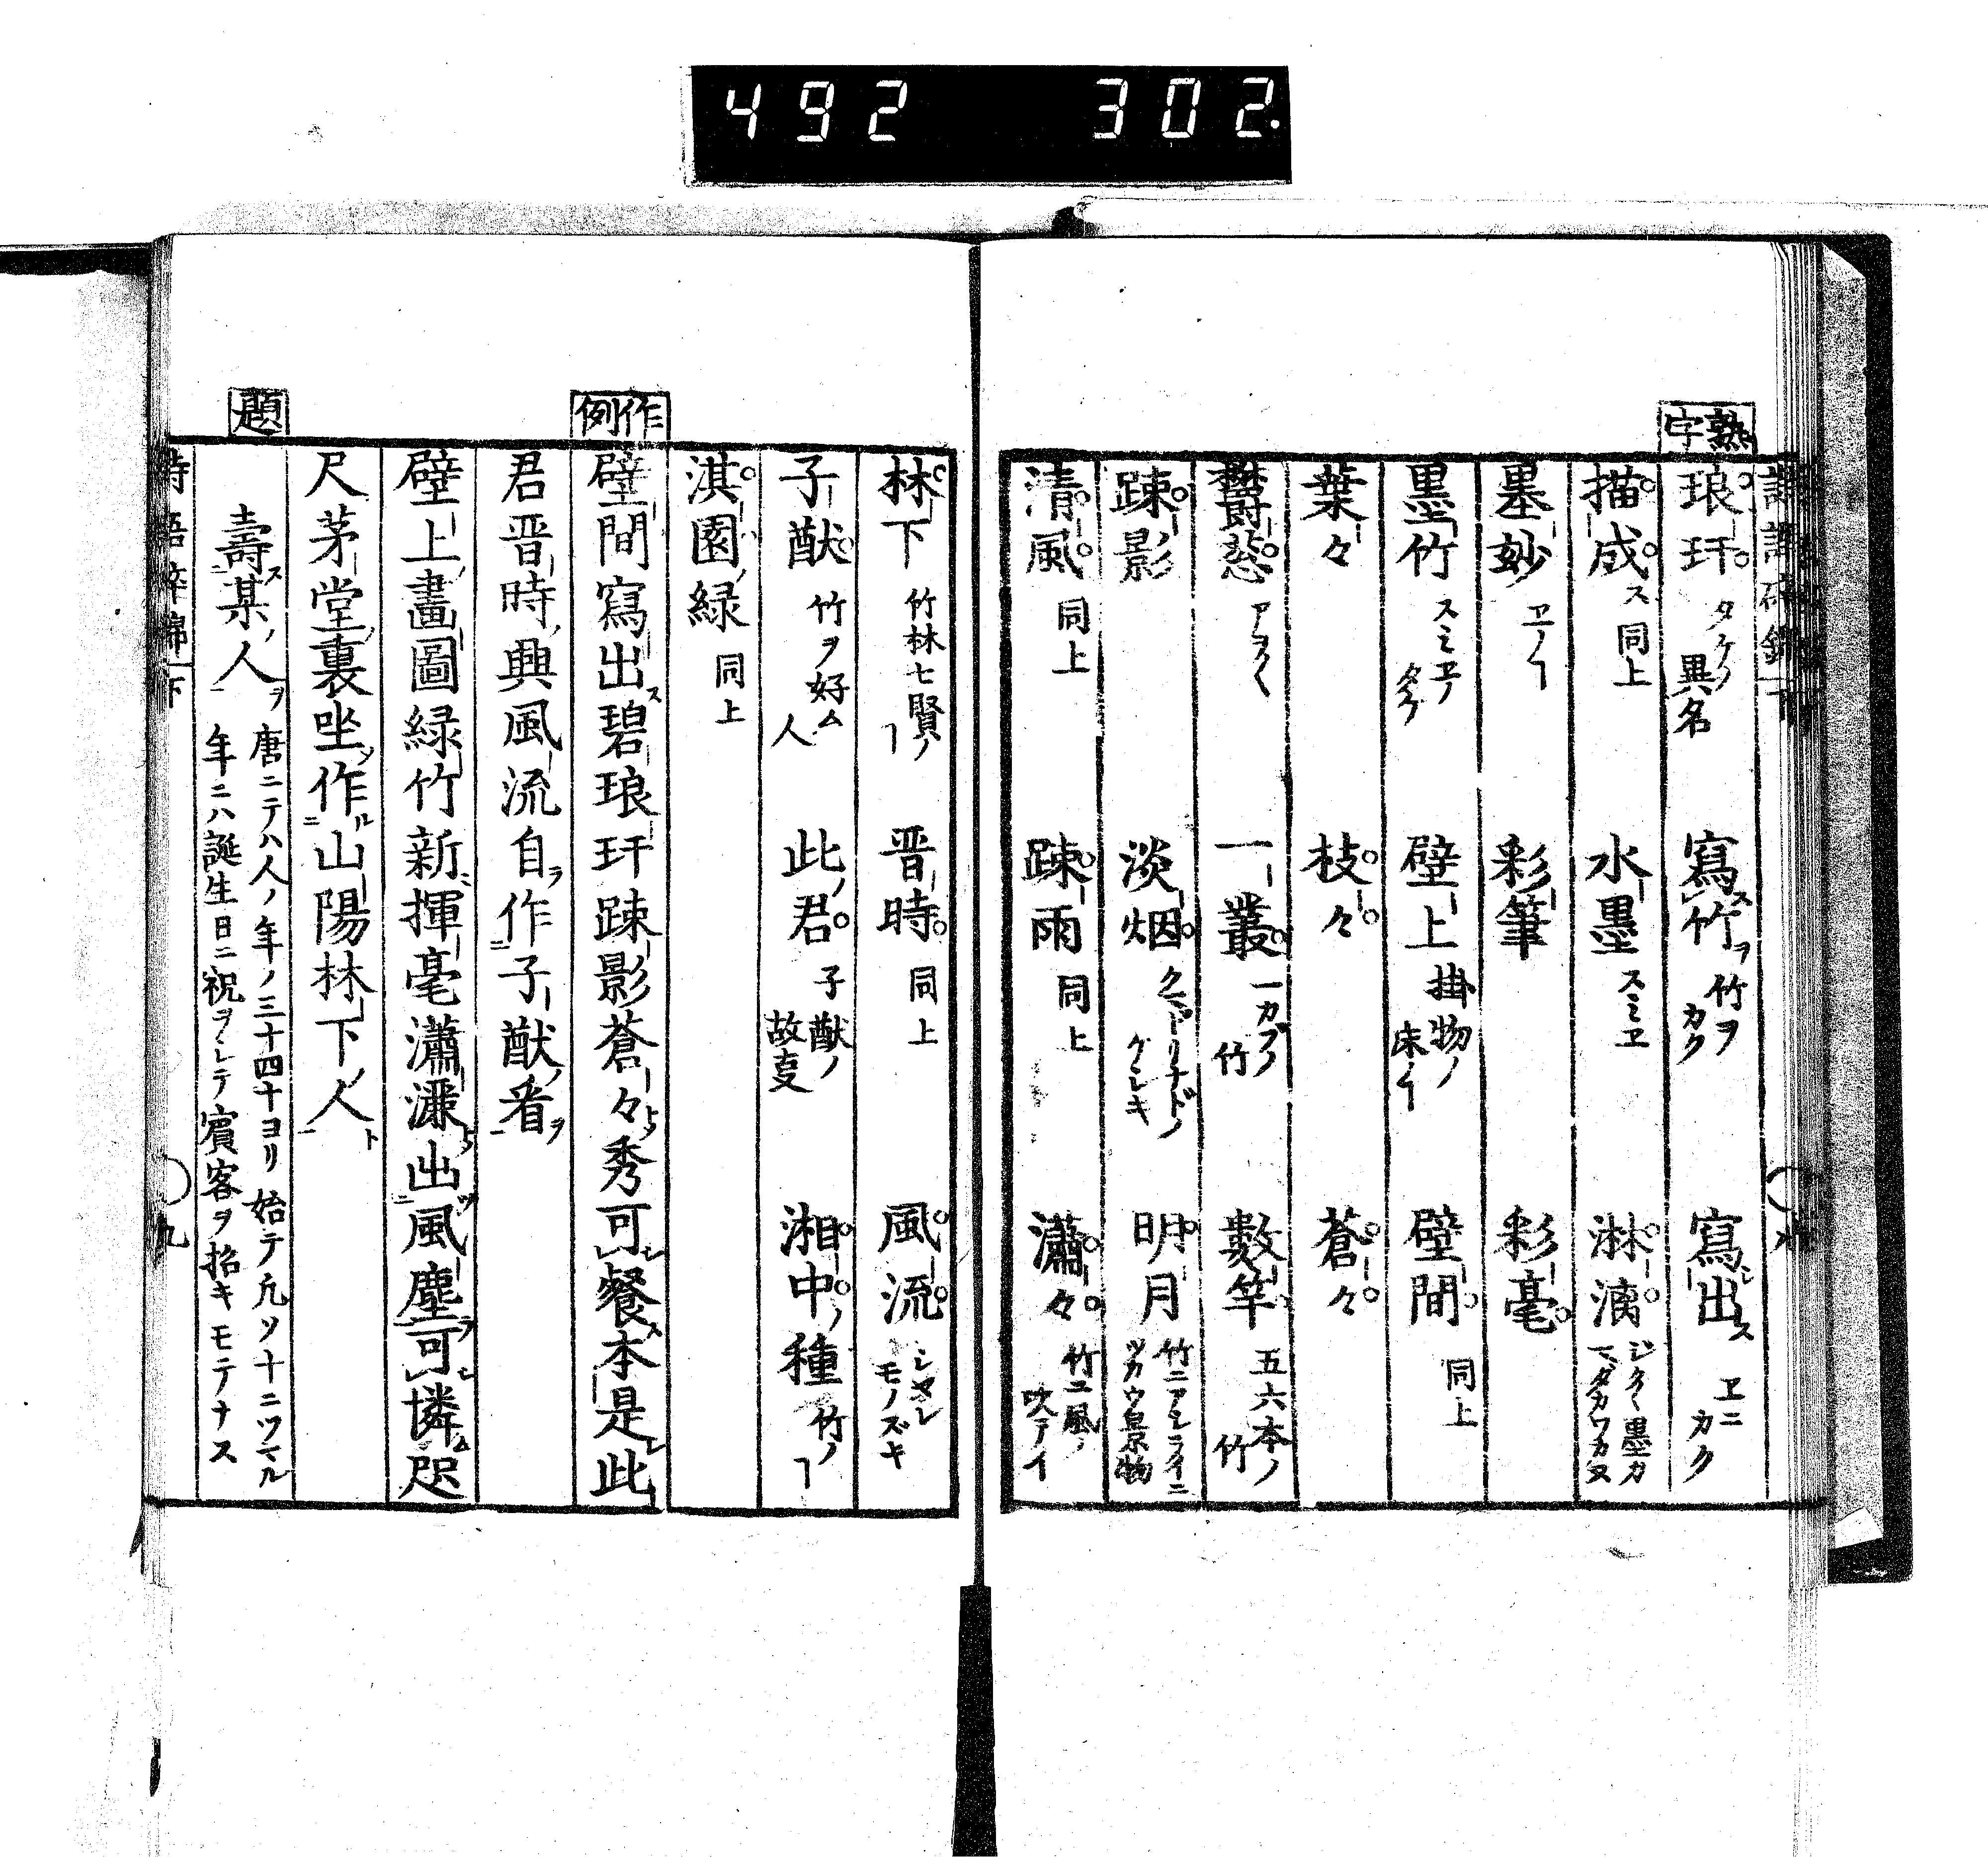 492 302.
熟字
琅玕 タケノ異名 寫竹ヲ 竹ヲカク 寫出ス ヱニカク
描成ス 同上 水墨 スミヱ 淋漓 ジク〱墨ガマダカワカヌ
墨妙 ヱノヿ 彩筆 彩毫
墨竹 スミヱノタケ 壁上 掛物ノ床ノイ 壁間 同上
葉々 枝々 蒼々
欝葱 アヲ〱 一叢 一カブノ竹 數竿 五六本ノ竹
踈影 淡烟 ケシキ 明月 竹ニアシライニツカウ景物
清風 同上 踈雨 同上 瀟々 竹ニ風ノ吹アイ
林下 竹林七賢ノヿ 晋時 同上 風流 シヤレモノズキ
子猷 竹ヲ好ム人 此ノ君 子猷ノ故叓 湘中ノ種 竹ノヿ
淇園ノ緑 同上
作例
壁間寫出ス碧琅玕踈影蒼々トシ秀可レ餐本是レ此
君晋時ノ興風流自ラ作ニ子猷ノ看ヲ一
壁上ノ畫圖緑竹新揮毫瀟灑トシ出ツニ風塵ヲ一可レ憐ム咫
尺茅堂ノ裏坐ソ作ルニ山陽林下ノ人ト一
題
壽スニ某ノ人ヲ一 唐ニテハ人ノ年ノ三十四十ヨリ始テ凡ソ十ニツマル
年ニハ誕生日ニ祝ヲシテ賓客ヲ招キモテナス
詩語粹錦 下
九